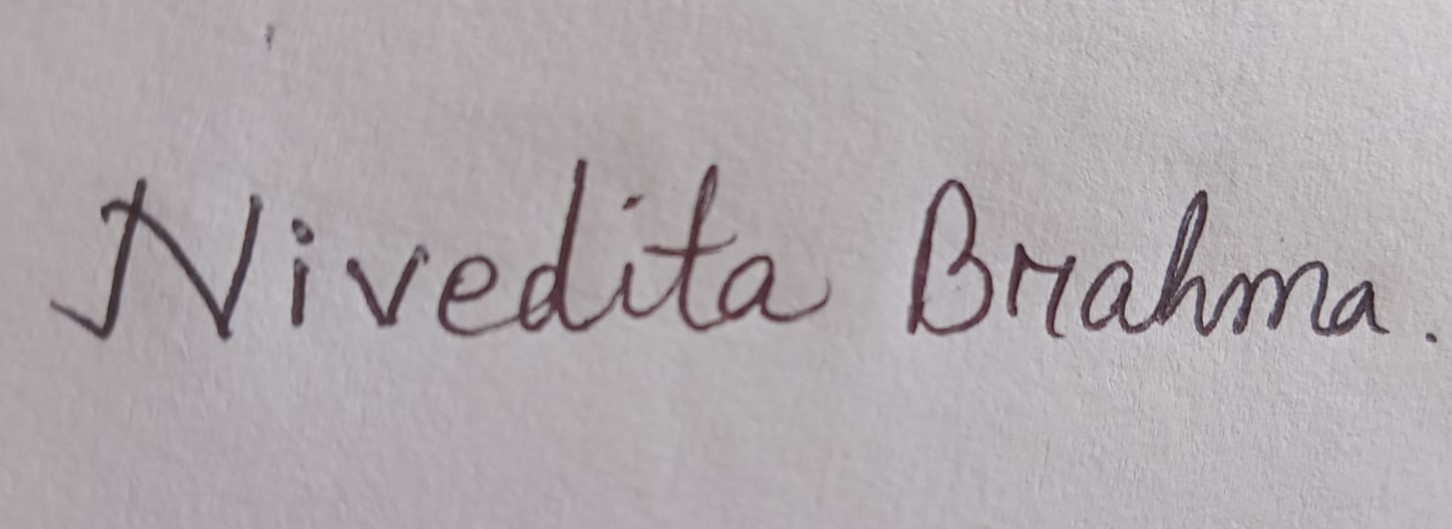 Nivedita Brahma.